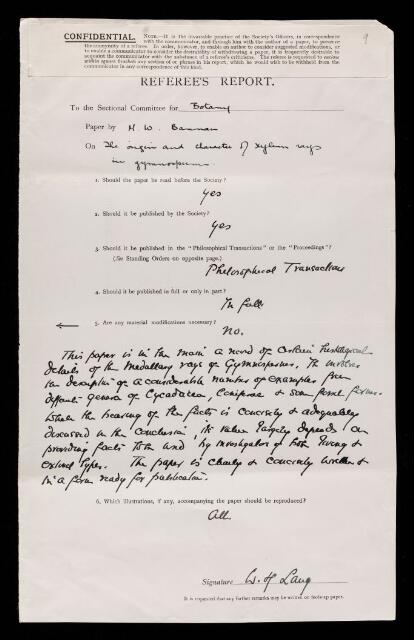 9
CONFIDENTIAL. NOTE.—It is the invariable practice of the Society's Officers, in correspondence
with the communicator, and through him with the author of a paper, to preserve
the anonymity of a referee. In order, however, to enable an author to consider suggested modifications, or
to enable a communicator to consider the desirability of withdrawing a paper, it is frequently desirable to
acquaint the communicator with the substance of a referee's criticisms. The referee is requested to
against any section of or phrase in his report, which he would wish to be withheld from the
communicator in any correspondence of this kind.
REFEREE'S REPORT.
To the Sectional Committee for Botany
Paper by M. W. Bannan
On The origin and character of xylem rays
in gymnosperms.
1. Should the paper be read before the Society?
yes
2. Should it be published by the Society?
yes
3. Should it be published in the "Philosophical Transactions" or the "Proceedings"?
(See Standing Orders on opposite page.)
Philosophical Transactions
4. Should it be published in full or only in part?
In full
5. Are any material modifications necessary?
No.
This paper is in the main a record of certain histological
details of the medullary rays of Gymnosperms. It involves
the description of a considerable number of examples from
different genera of Cycadales, Coniferae & some fossil forms.
While the bearing of the facts is concisely & adequately
discussed in the conclusion, its value largely depends on
providing facts to be used by investigators of both living &
extinct types. The paper is clearly & concisely written &
in a form ready for publication.
6. Which illustrations, if any, accompanying the paper should be reproduced?
All.
Signature W. H. Lang
It is requested that any further remarks may be written on foolscap paper.